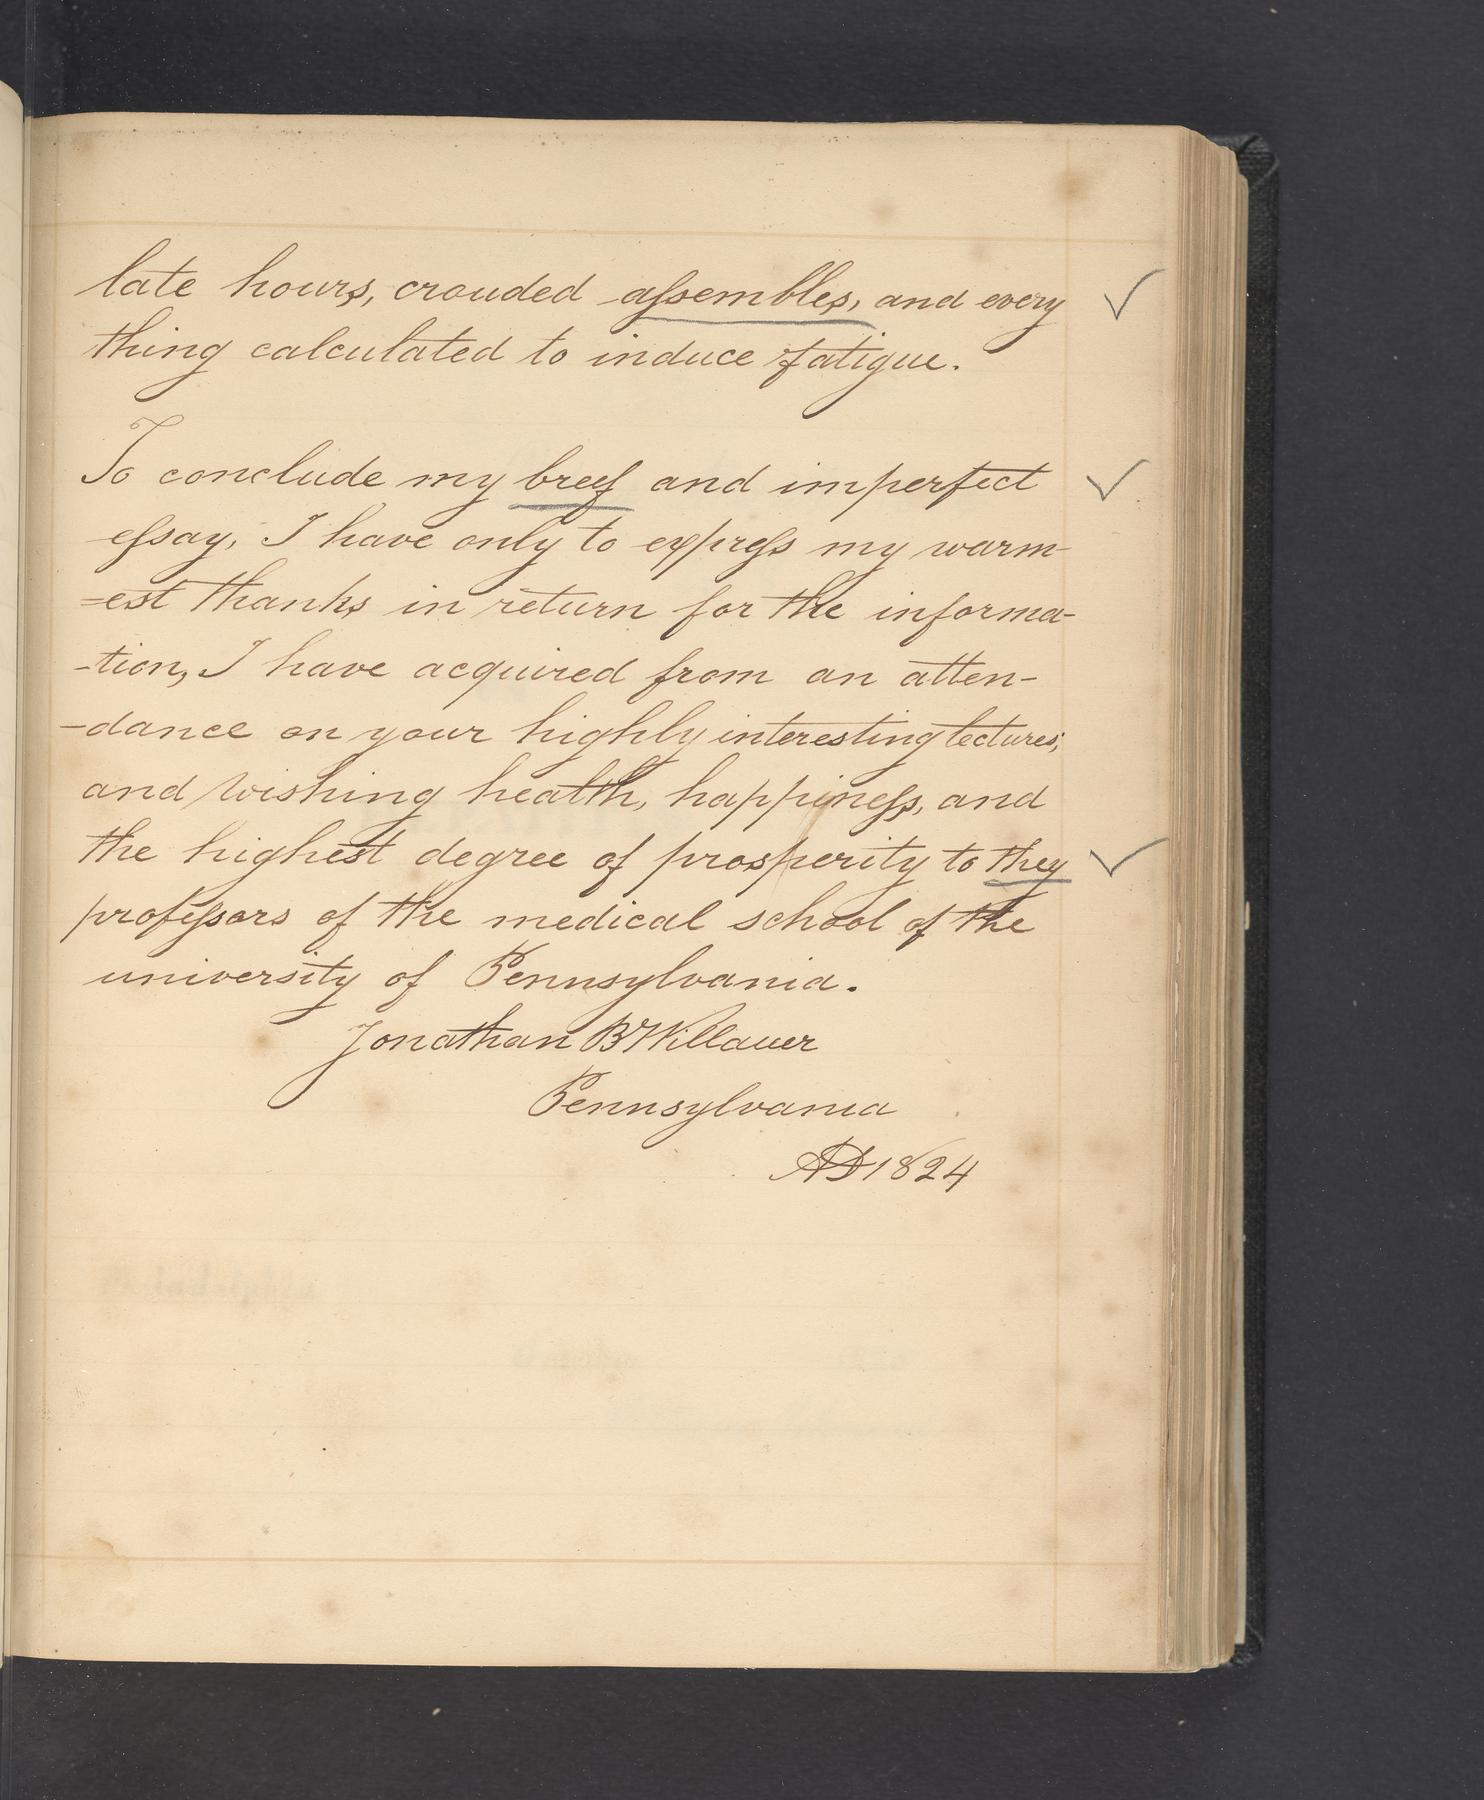 late hours, crouded aſsembles, and every
thing calculated to induce fatigue.
To conclude my breef and imperfect
eſsay, I have only to expreſs my warm-
=est thanks in return for the informa-
-tion, I have acquired from an atten-
-dance on your highly interesting lectures;
and wishing health, happineſs, and
the highest degree of prosperity to they
profeſsors of the medical school of the
university of Pennsylvania.
Jonathan B Willauer
Pennsylvania
AD 1824